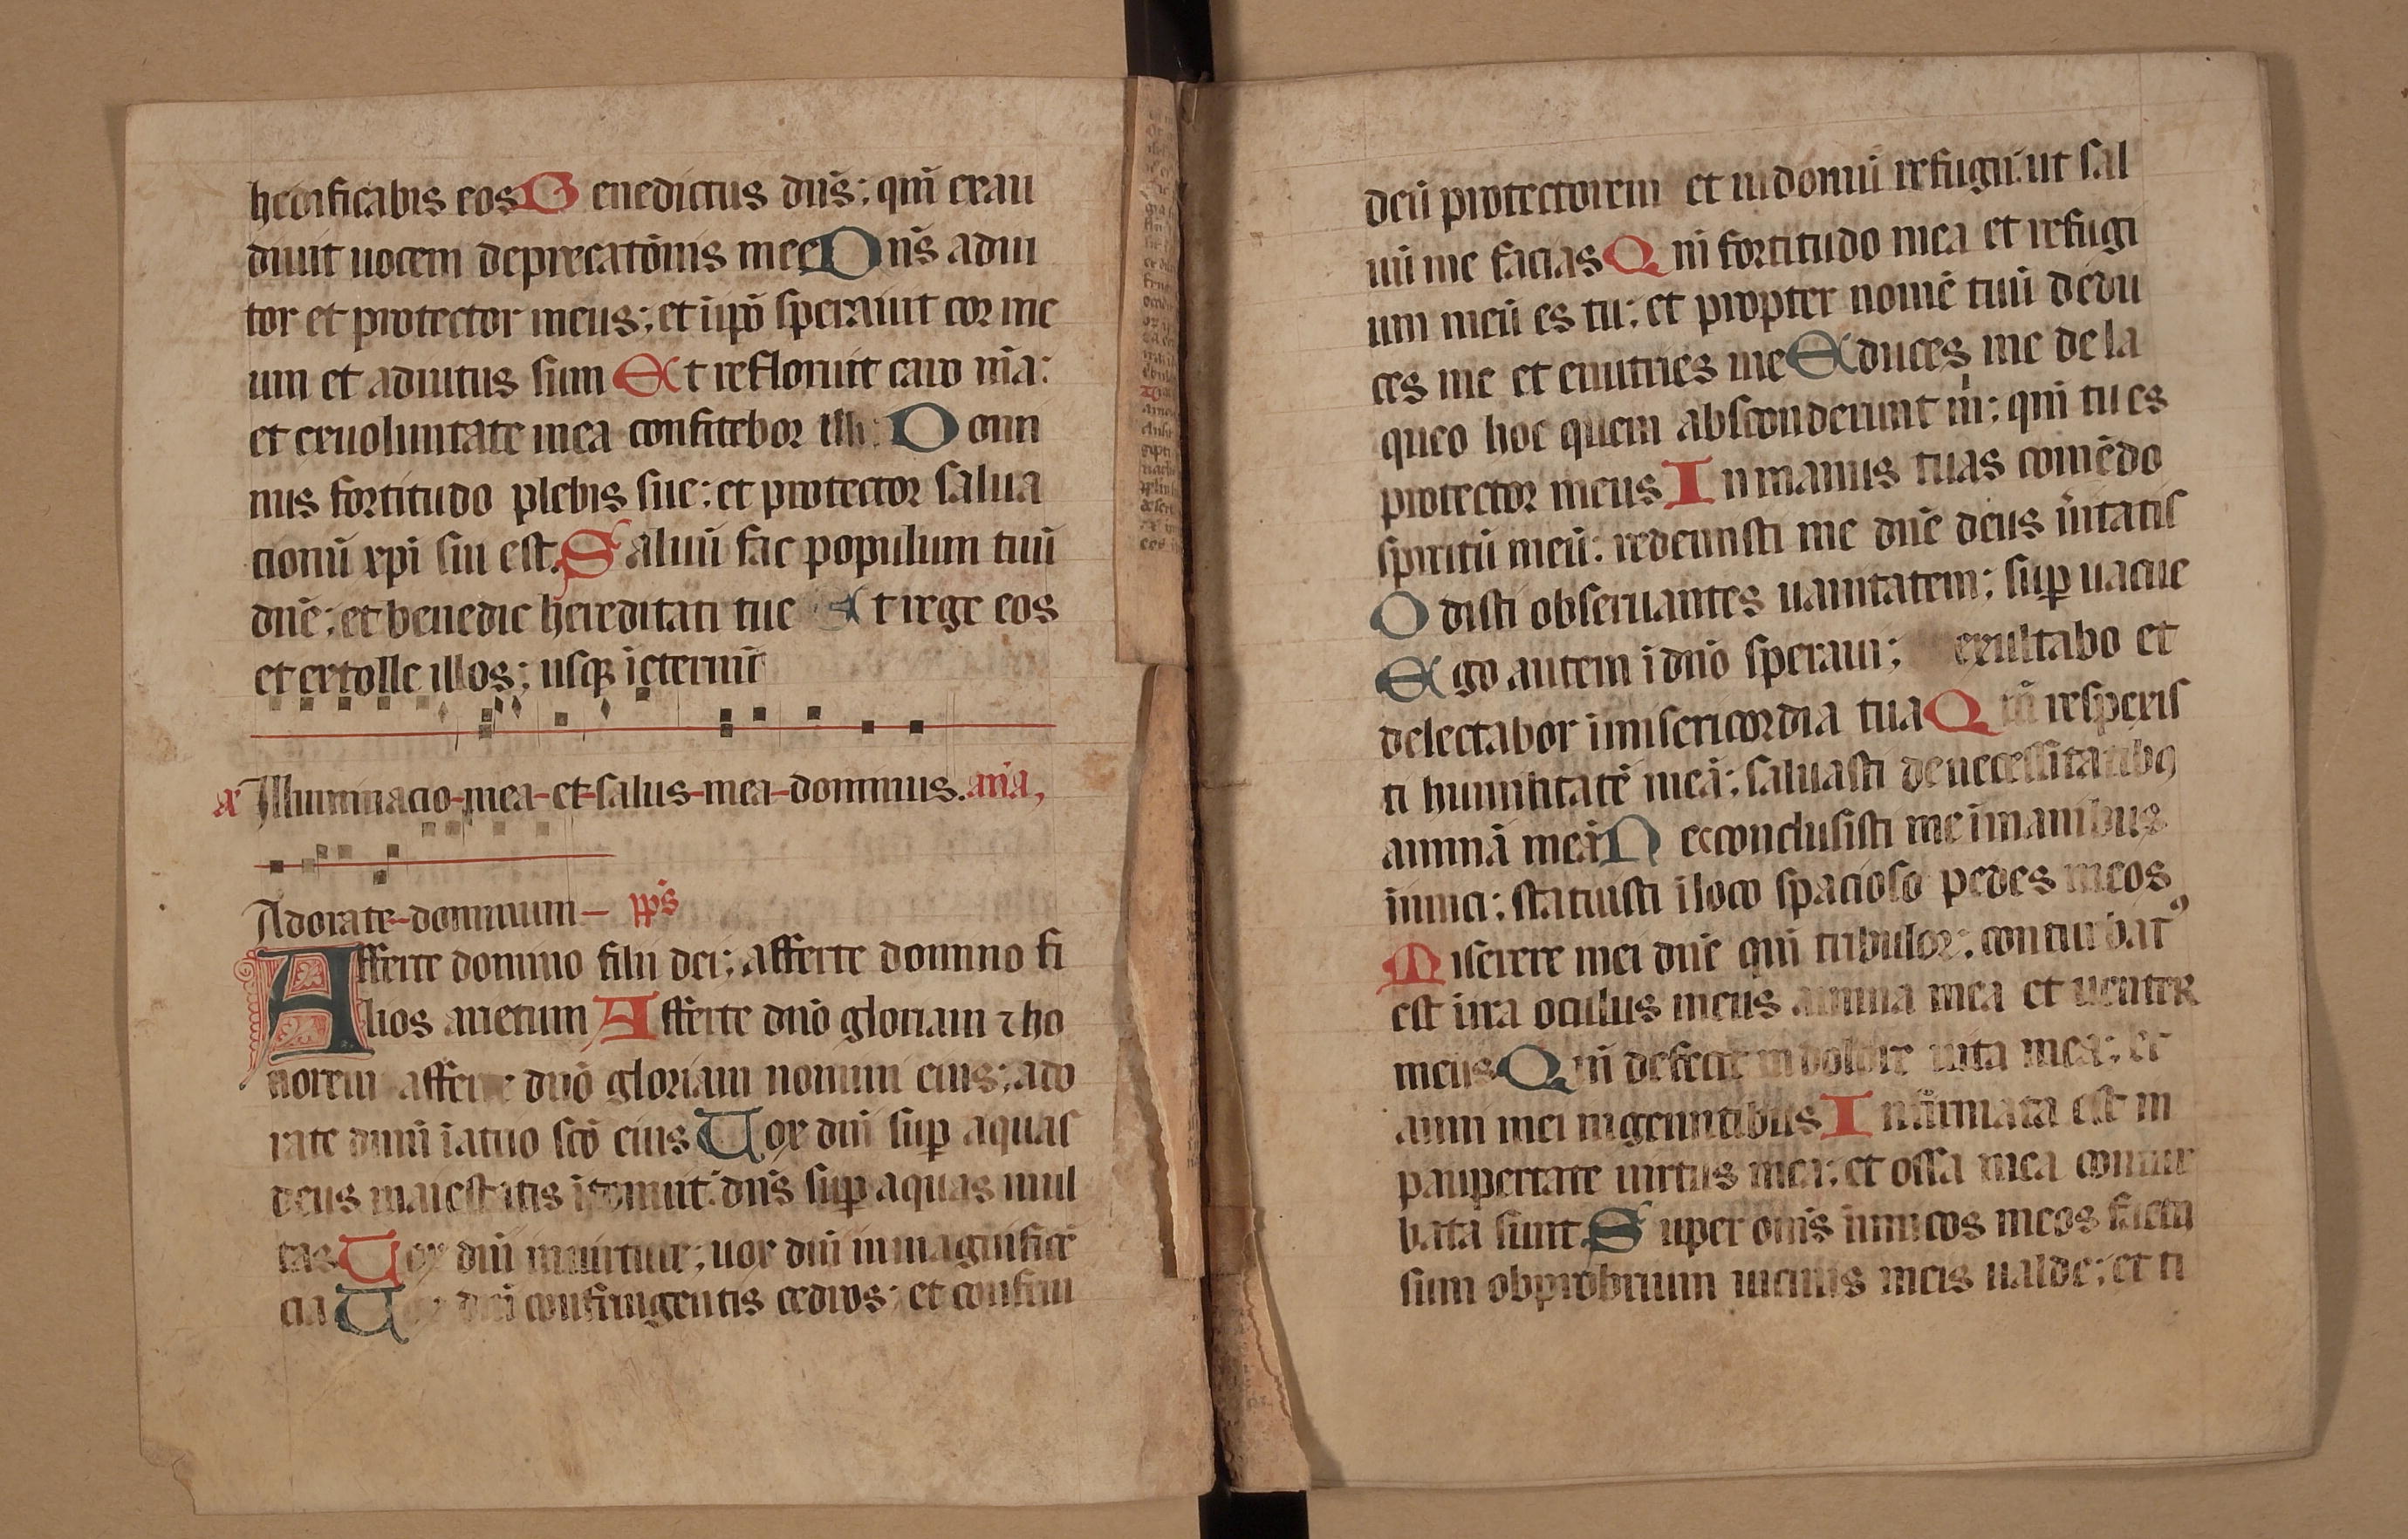 hedificabis eos Benedictus dn̄s; qm̄ exau
diuit uocem deprecatōnis mee Dn̄s adiu
tor et protector meus; et īip̄o sperauit cor me
um et adiutus sum Et refloruit caro m̄a:
et exuoluntate mea confitebor illi: Domi
nus fortitudo plebis sue; et protector salua
cionū xp̄i sui est. Saluū fac populum tuū
dn̄e; et benedic hereditati tue Et rege eos
et extolle illos; usqꝫ īeternū
Illuminacio mea et salus mea dominus. an̄a,
Adorate dominum p̄s
Afferte domino filii dei; afferte domino fi
lios arietum Afferte dn̄o gloriam ⁊ ho
norem afferte dn̄o gloriam nomini eius; ado
rate dnm̄ īatrio sc̄o eius Uox dn̄i suꝑ aquas
deus maiestatis ītonuit: dn̄s suꝑ aquas mul
tas Uox dn̄i inuirtute; uox dn̄i inmagnificē
cia Uox dn̄i confringentis cedros; et confrin
deū protectorem et indomū refugii: ut sal
uū me facias Qm̄ fortitudo mea et refugi
um meū es tu; et propter nomē tuū dedu
ces me et enutries me Educes me de la
queo hoc quem absconderunt m̍; qm̄ tu es
protector meus In manus tuas comēdo
spiritū meū: redemisti me dn̄e deus ūitatis
Odisti obseruantes uanitatem; suꝑ uacue
Ego autem ī dn̄o speraui; exultabo et
delectabor īmisericordia tua Qm̄ respexis
ti humilitatē meā; saluasti de necessitatibꝰ
animā meā Nec conclusisti me īmanibus
inimici; statuisti īloco spacioso pedes meos
Miserere mei dn̄e qm̄ tribulor; conturbatꝰ
est īira oculus meus anima mea et uenter
meus Qm̄ defecit indolore uita mea; et
anni mei ingemitibus Infirmata est in
paupertate uirtus mea; et ossa mea contur
bata sunt. Super om̄s inimicos meos factꝰ
sum obprobrium uicinis meis ualde; et ti